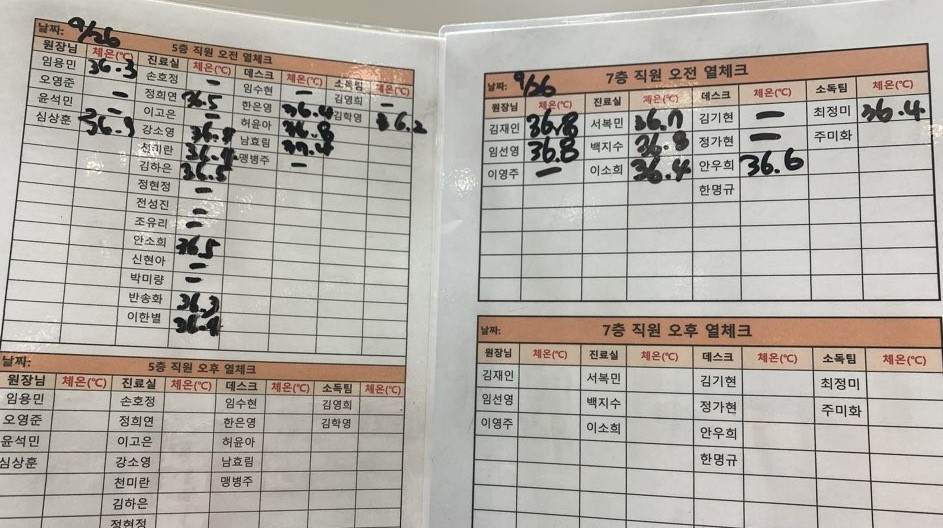 날짜: 9/26 5층 직원 오전 열체크
원장님 체온(℃) 진료실 체온(℃) 데스크 체온(℃) 소독팀 체온(℃)
임용민 36.3 손호정 — 임수현 — 김영희 —
오영준 — 정희연 36.5 한은영 36.4 김학영 36.2
윤석민 — 이고은 — 허윤아 36.8
심상훈 강소영 남효림
천미란 맹병주 —
김하은 36.5
정현정 —
전성진 —
조유리 —
안소희 36.5
신현아 —
박미량 —
반송화 36.3
이한별 36.4
날짜: 5층 직원 오후 열체크
원장님 체온(℃) 진료실 체온(℃) 데스크 체온(℃) 소독팀 체온(℃)
임용민 손호정 임수현 김영희
오영준 정희연 한은영 김학영
윤석민 이고은 허윤아
심상훈 강소영 남효림
천미란 맹병주
김하은
정현정
날짜: 9/26 7층 직원 오전 열체크
원장님 체온(℃) 진료실 체온(℃) 데스크 체온(℃) 소독팀 체온(℃)
김재인 36.8 서복민 36.7 김기현 — 최정미 36.4
임선영 36.8 백지수 36.8 정가현 — 주미화
이영주 — 이소희 36.4 안우희 36.6
한명규
날짜: 7층 직원 오후 열체크
원장님 체온(℃) 진료실 체온(℃) 데스크 체온(℃) 소독팀 체온(℃)
김재인 서복민 김기현 최정미
임선영 백지수 정가현 주미화
이영주 이소희 안우희
한명규